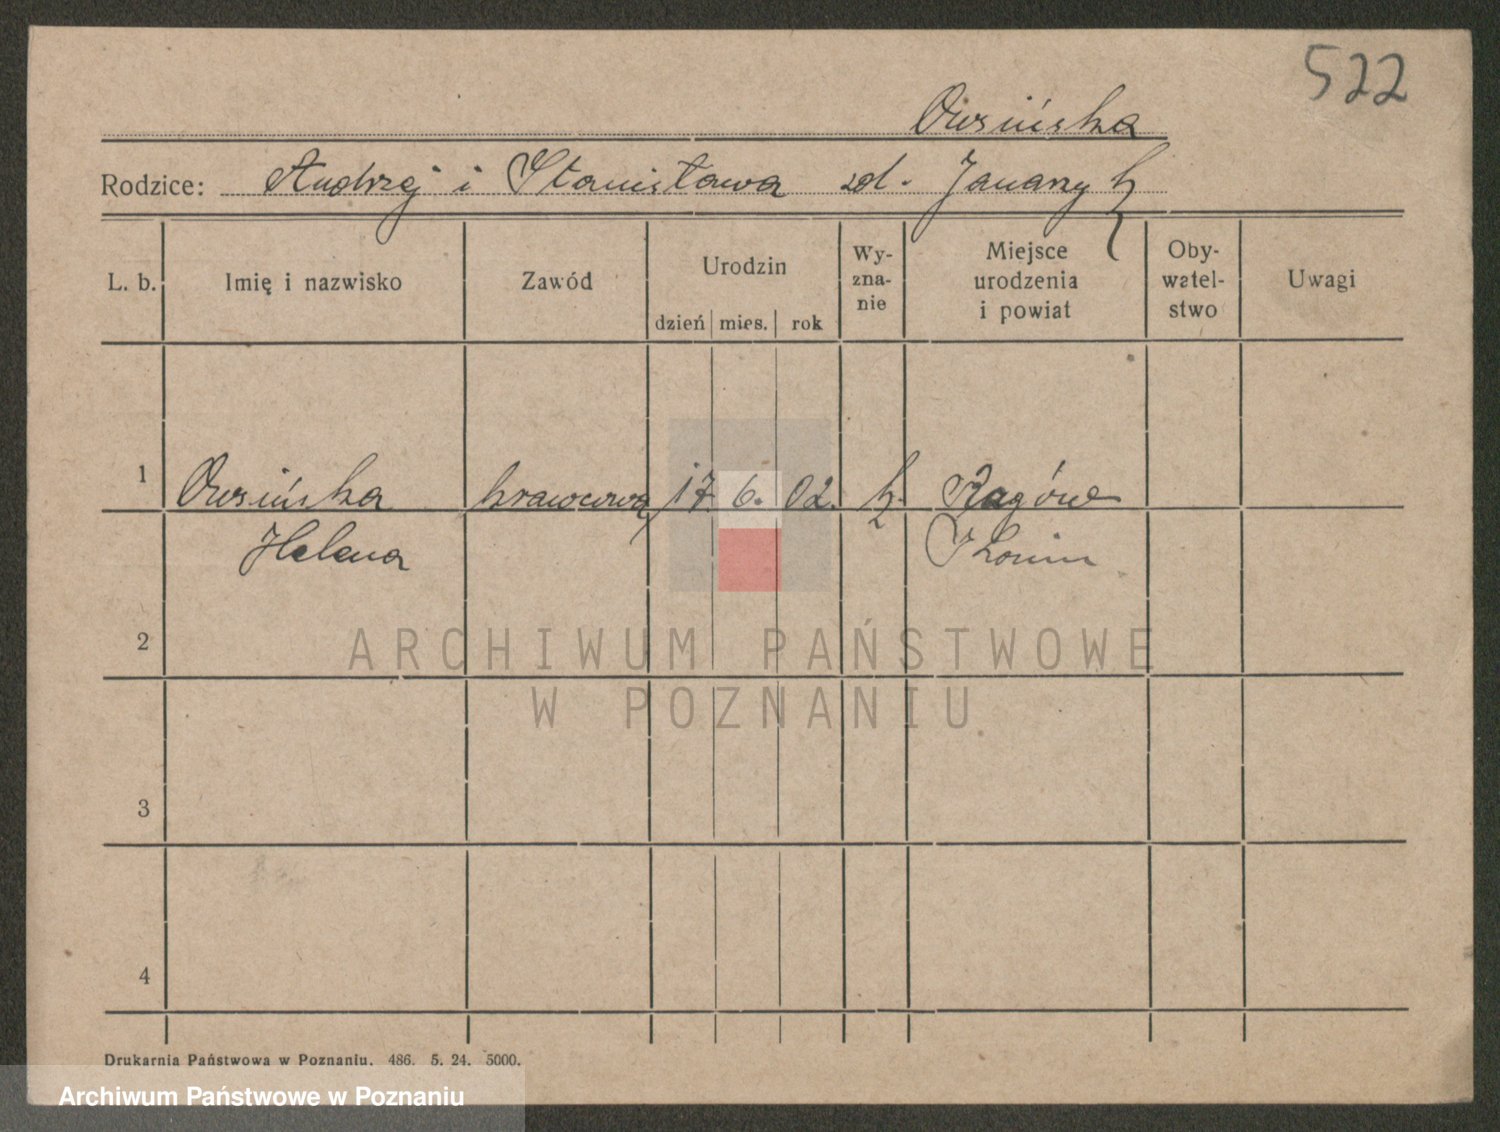 522
Owsińska
Rodzice: Andrzej i Stanisława zd. Januszy k
L. b. Imię i nazwisko Zawód Urodzin dzień mies. rok Wy-zna-nie Miejsce urodzenia i powiat Oby-watel-stwo Uwagi
1 Owsińska krawcowa 17. 6. 02. k.
Helena
2
ARCHIWUM PAŃSTWOWE
W POZNANIU
3
4
Drukarnia Państwowa w Poznaniu. 486. 5. 24. 5000.
Archiwum Państwowe w Poznaniu